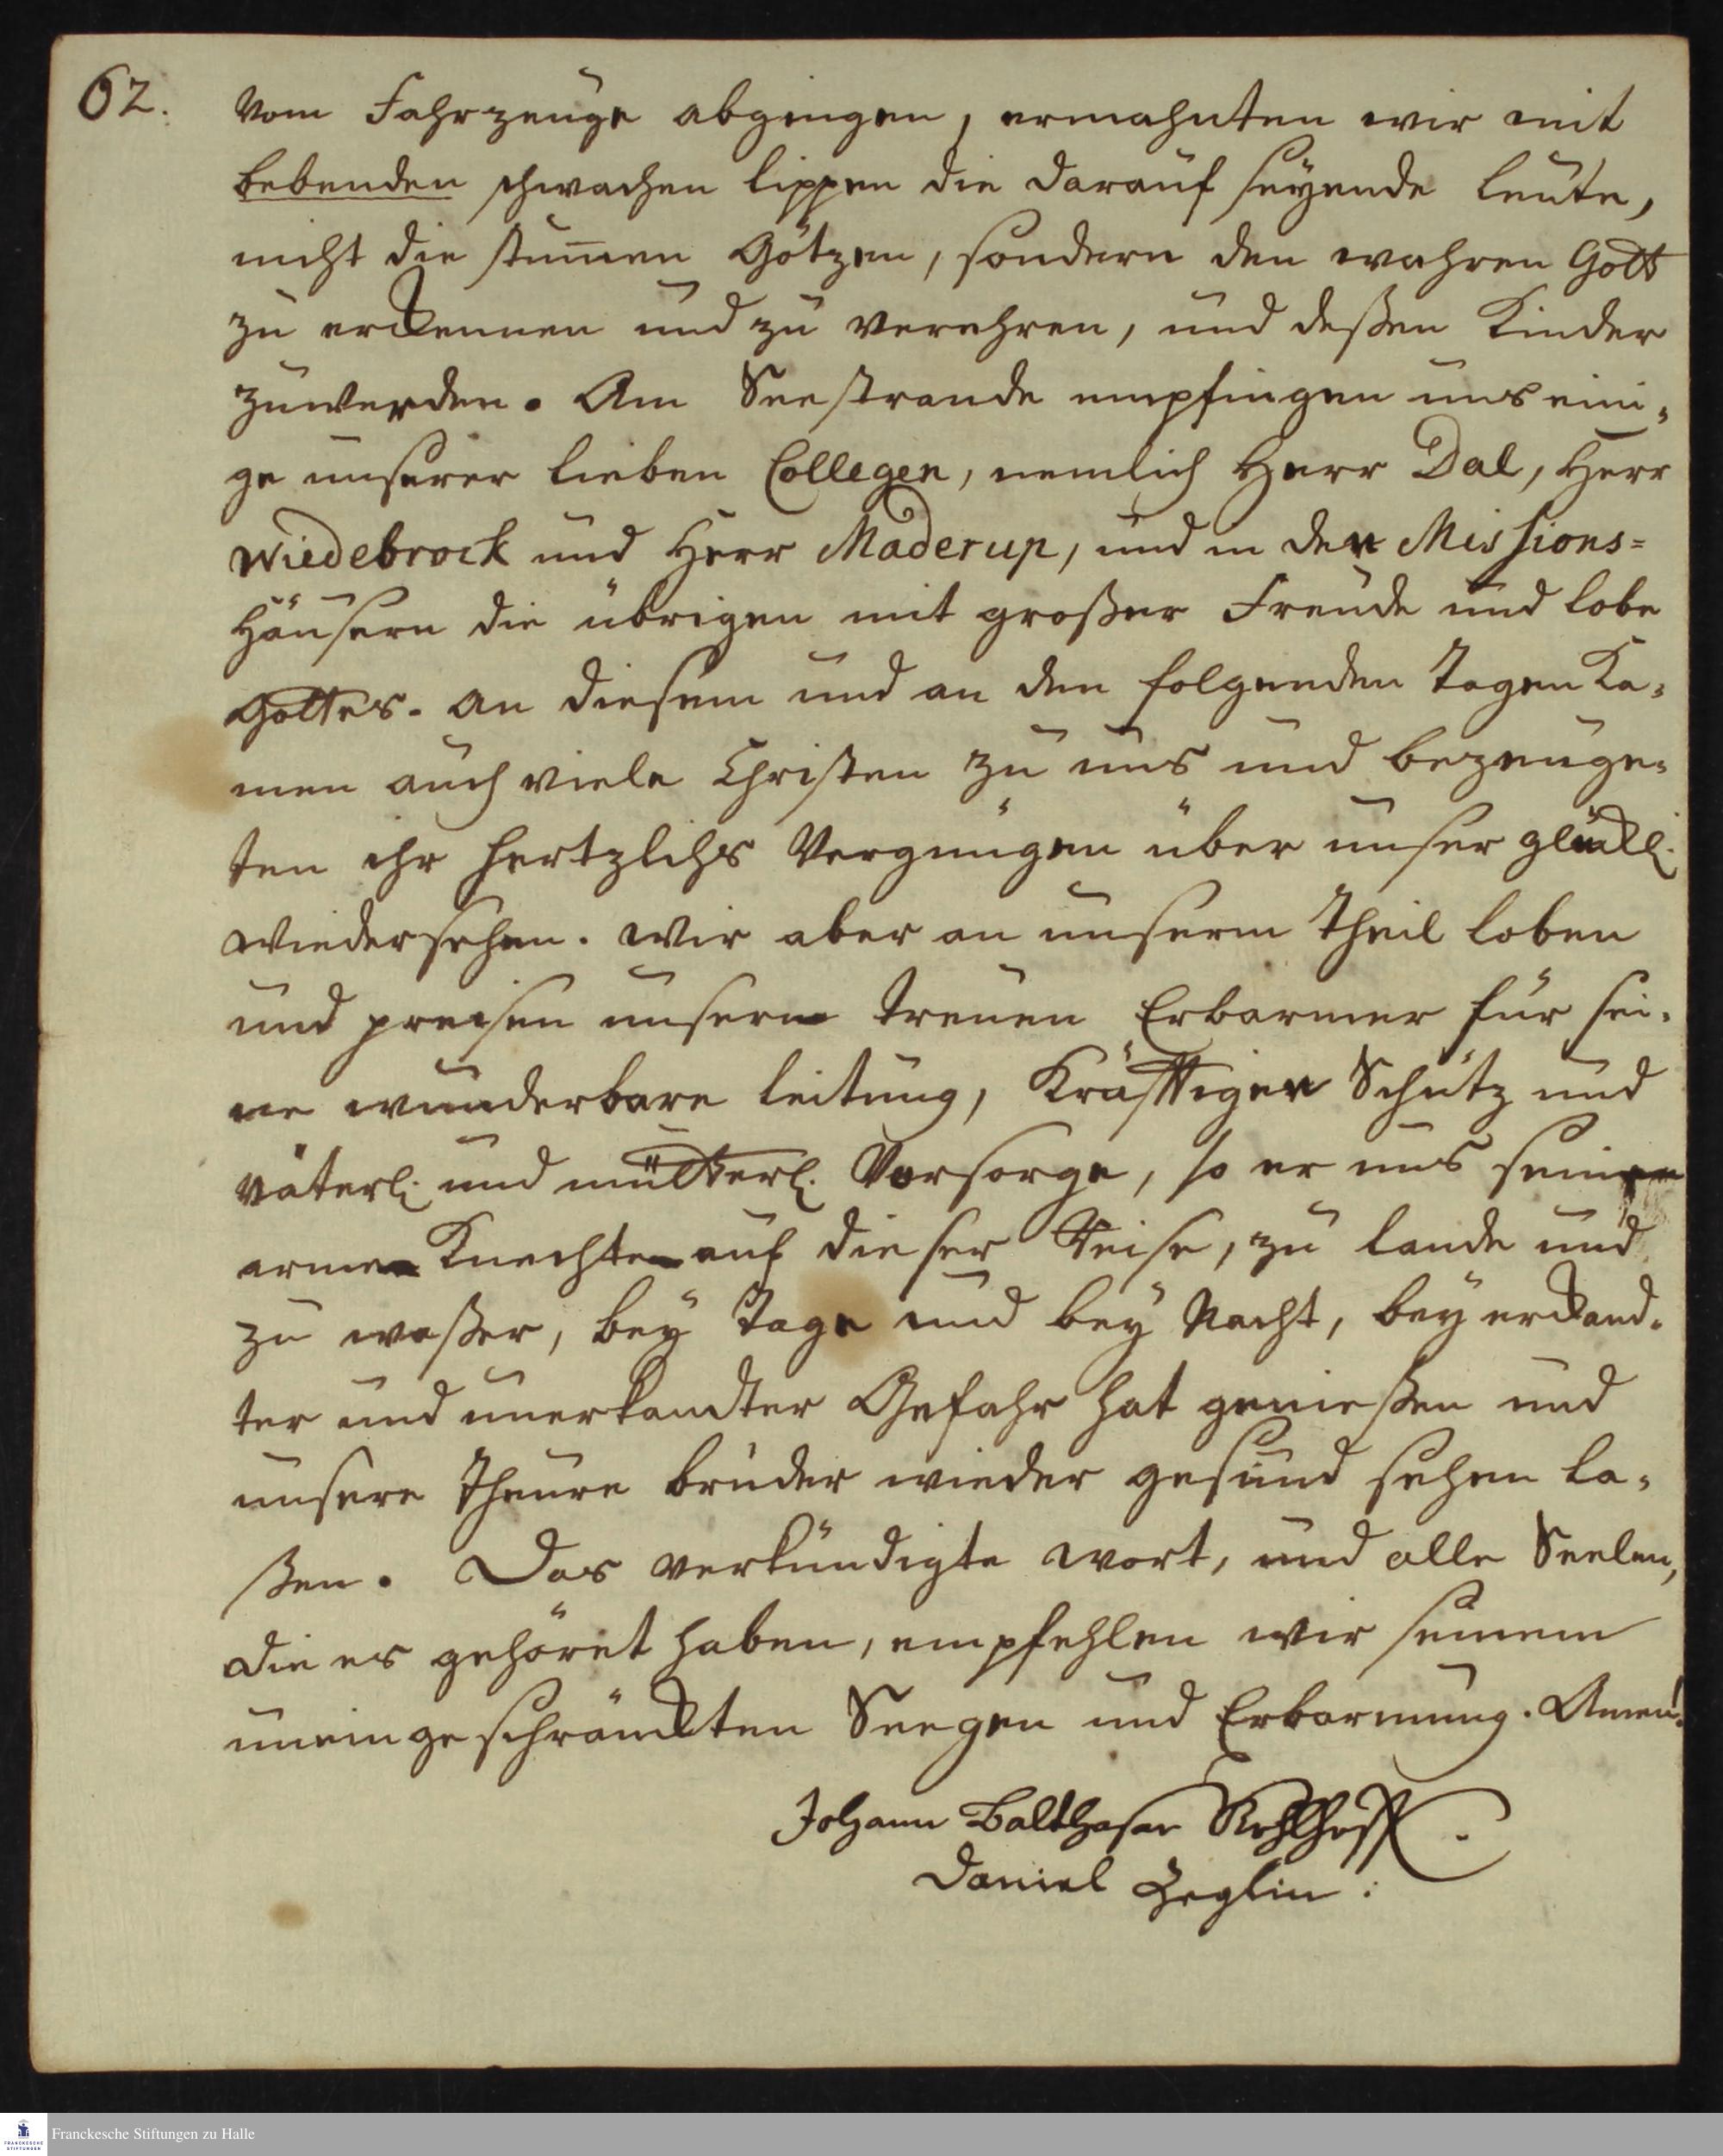 62.
vom Fahrzeuge abgingen, ermahnten wir mit
bebenden schwachen lippen die darauf seyende leute,
nicht die stum̅en Götzen, sondern den wahren Gott
zu erckennen und zu verehren, und deßen Kinder
zuwerden. Am Seestrande empfingen uns eini=
ge unserer lieben Collegen, nemlich Herr Dal, Herr
Wiedebrock und Herr Maderup, und in den Missions=
Häusern die übrigen mit großer Freude und lobe
Gottes. an diesem und an den folgenden Tagen ka=
men auch viele Christen zu uns und bezeuge=
ten ihr hertzlichs Vergnügen über unser glückl.
wiedersehen. wir aber an unserm Theil loben
und preisen unsern treuen Erbarmer für sei=
ne wunderbare leitung, kräfftigen Schutz und
väterl. und mütterl. Vorsorge, so er uns seine
arme Knechte auf dieser Reise, zu lande und
zu waßer, bey Tage und bey Nacht, bey erckand=
ter und unerkandter Gefahr hat genießen und
unsere Theure brüder wieder gesund sehen la=
ßen. Das verkündigte wort, und alle Seelen,
die es gehöret haben, empfehlen wir seinem
uneingeschränckten Seegen und Erbarmung. Amen!
Johann Balthasar Kohlhoff.
Daniel Zeglin.
Franckesche Stiftungen zu Halle
FRANCKESCHE
STIFTUNGEN